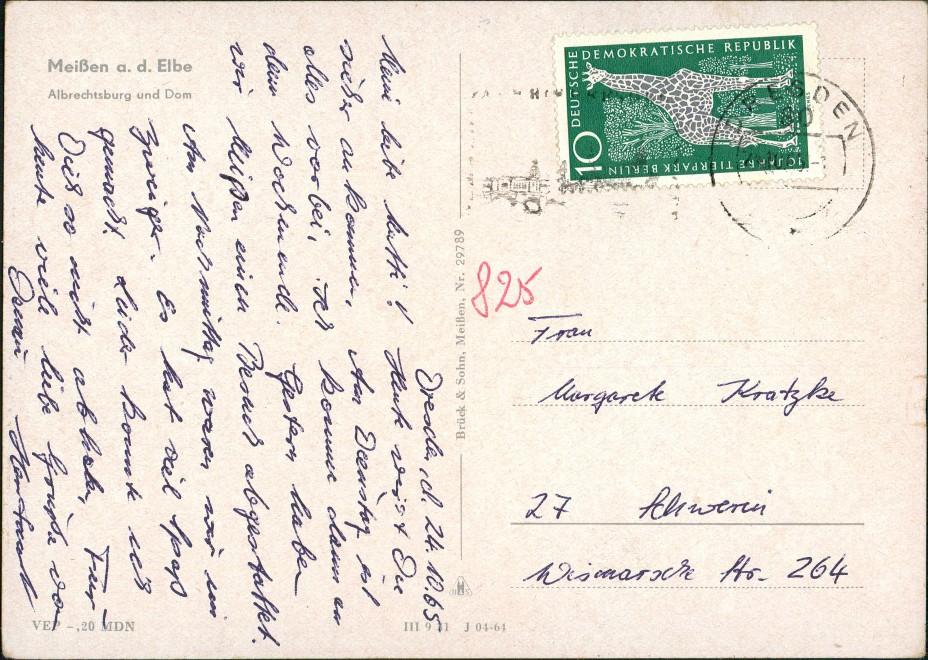 Meißen a. d. Elbe
Albrechtsburg und Dom
Dresden, d. 24.10.65
Meine liebe Mutti! Heute wirst Du
sicher ankommen. Am Dienstag ist
alles vorbei. Ich komme dann an
dem Wochenende. Gestern haben
wir Meißen einen Besuch abgestattet.
Am Nachmittag waren wir im
Zwinger. Es hat viel Spaß
gemacht. Leider konnte ich
Dich so nicht abholen. Für
heute viele liebe Grüße von
Deinem Hartmut
VEP -,20 MDN
III 9 41 J 04-64
Brück & Sohn, Meißen, Nr. 29789
DEUTSCHE DEMOKRATISCHE REPUBLIK
10
10 JAHRE TIERPARK BERLIN
DRESDEN
825
Frau
Margarete Kratzke
27 Schwerin
Wismarsche Str. 264